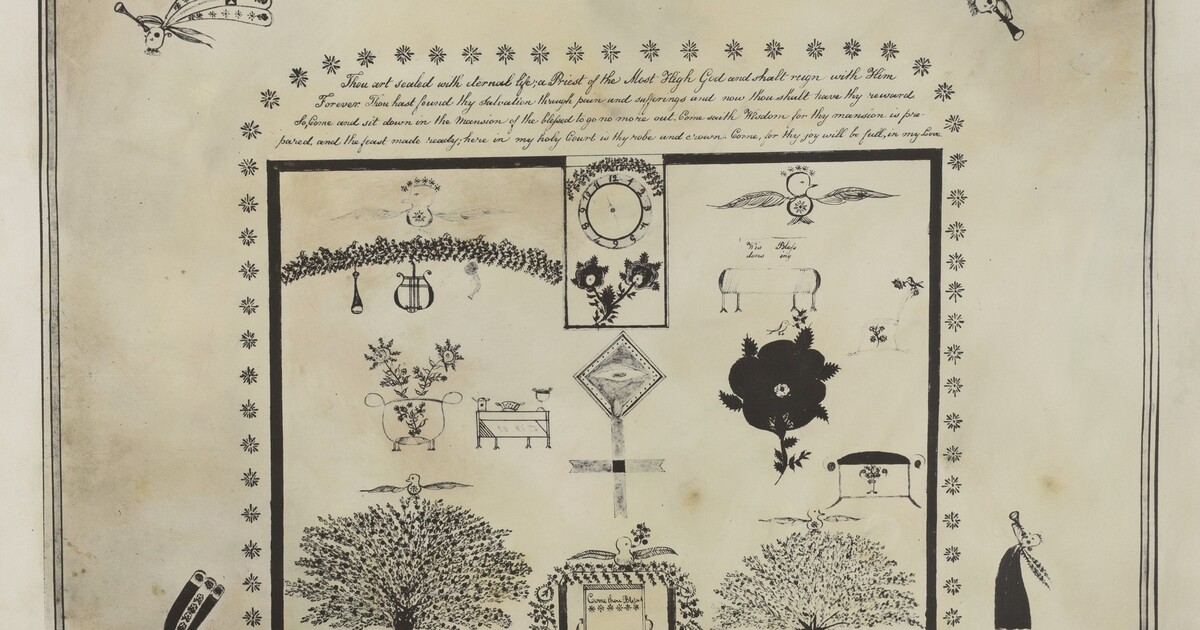 Thou art sealed with eternal life; a Priest of the Most High God and shalt reign with Him
Forever. Thou hast found thy Salvation through pain and sufferings and now thou shalt have thy reward.
So, Come and sit down in the Mansion of the blessed to go no more out. Come saith Wisdom for thy mansion is pre-
pared, and the feast made ready; here in my holy Court is thy robe and crown. Come, for thy joy will be full, in my Love
12 1 2 3 5 6 7 8 9 10 11
Wis Bless
doms ing
Come thou Blessed